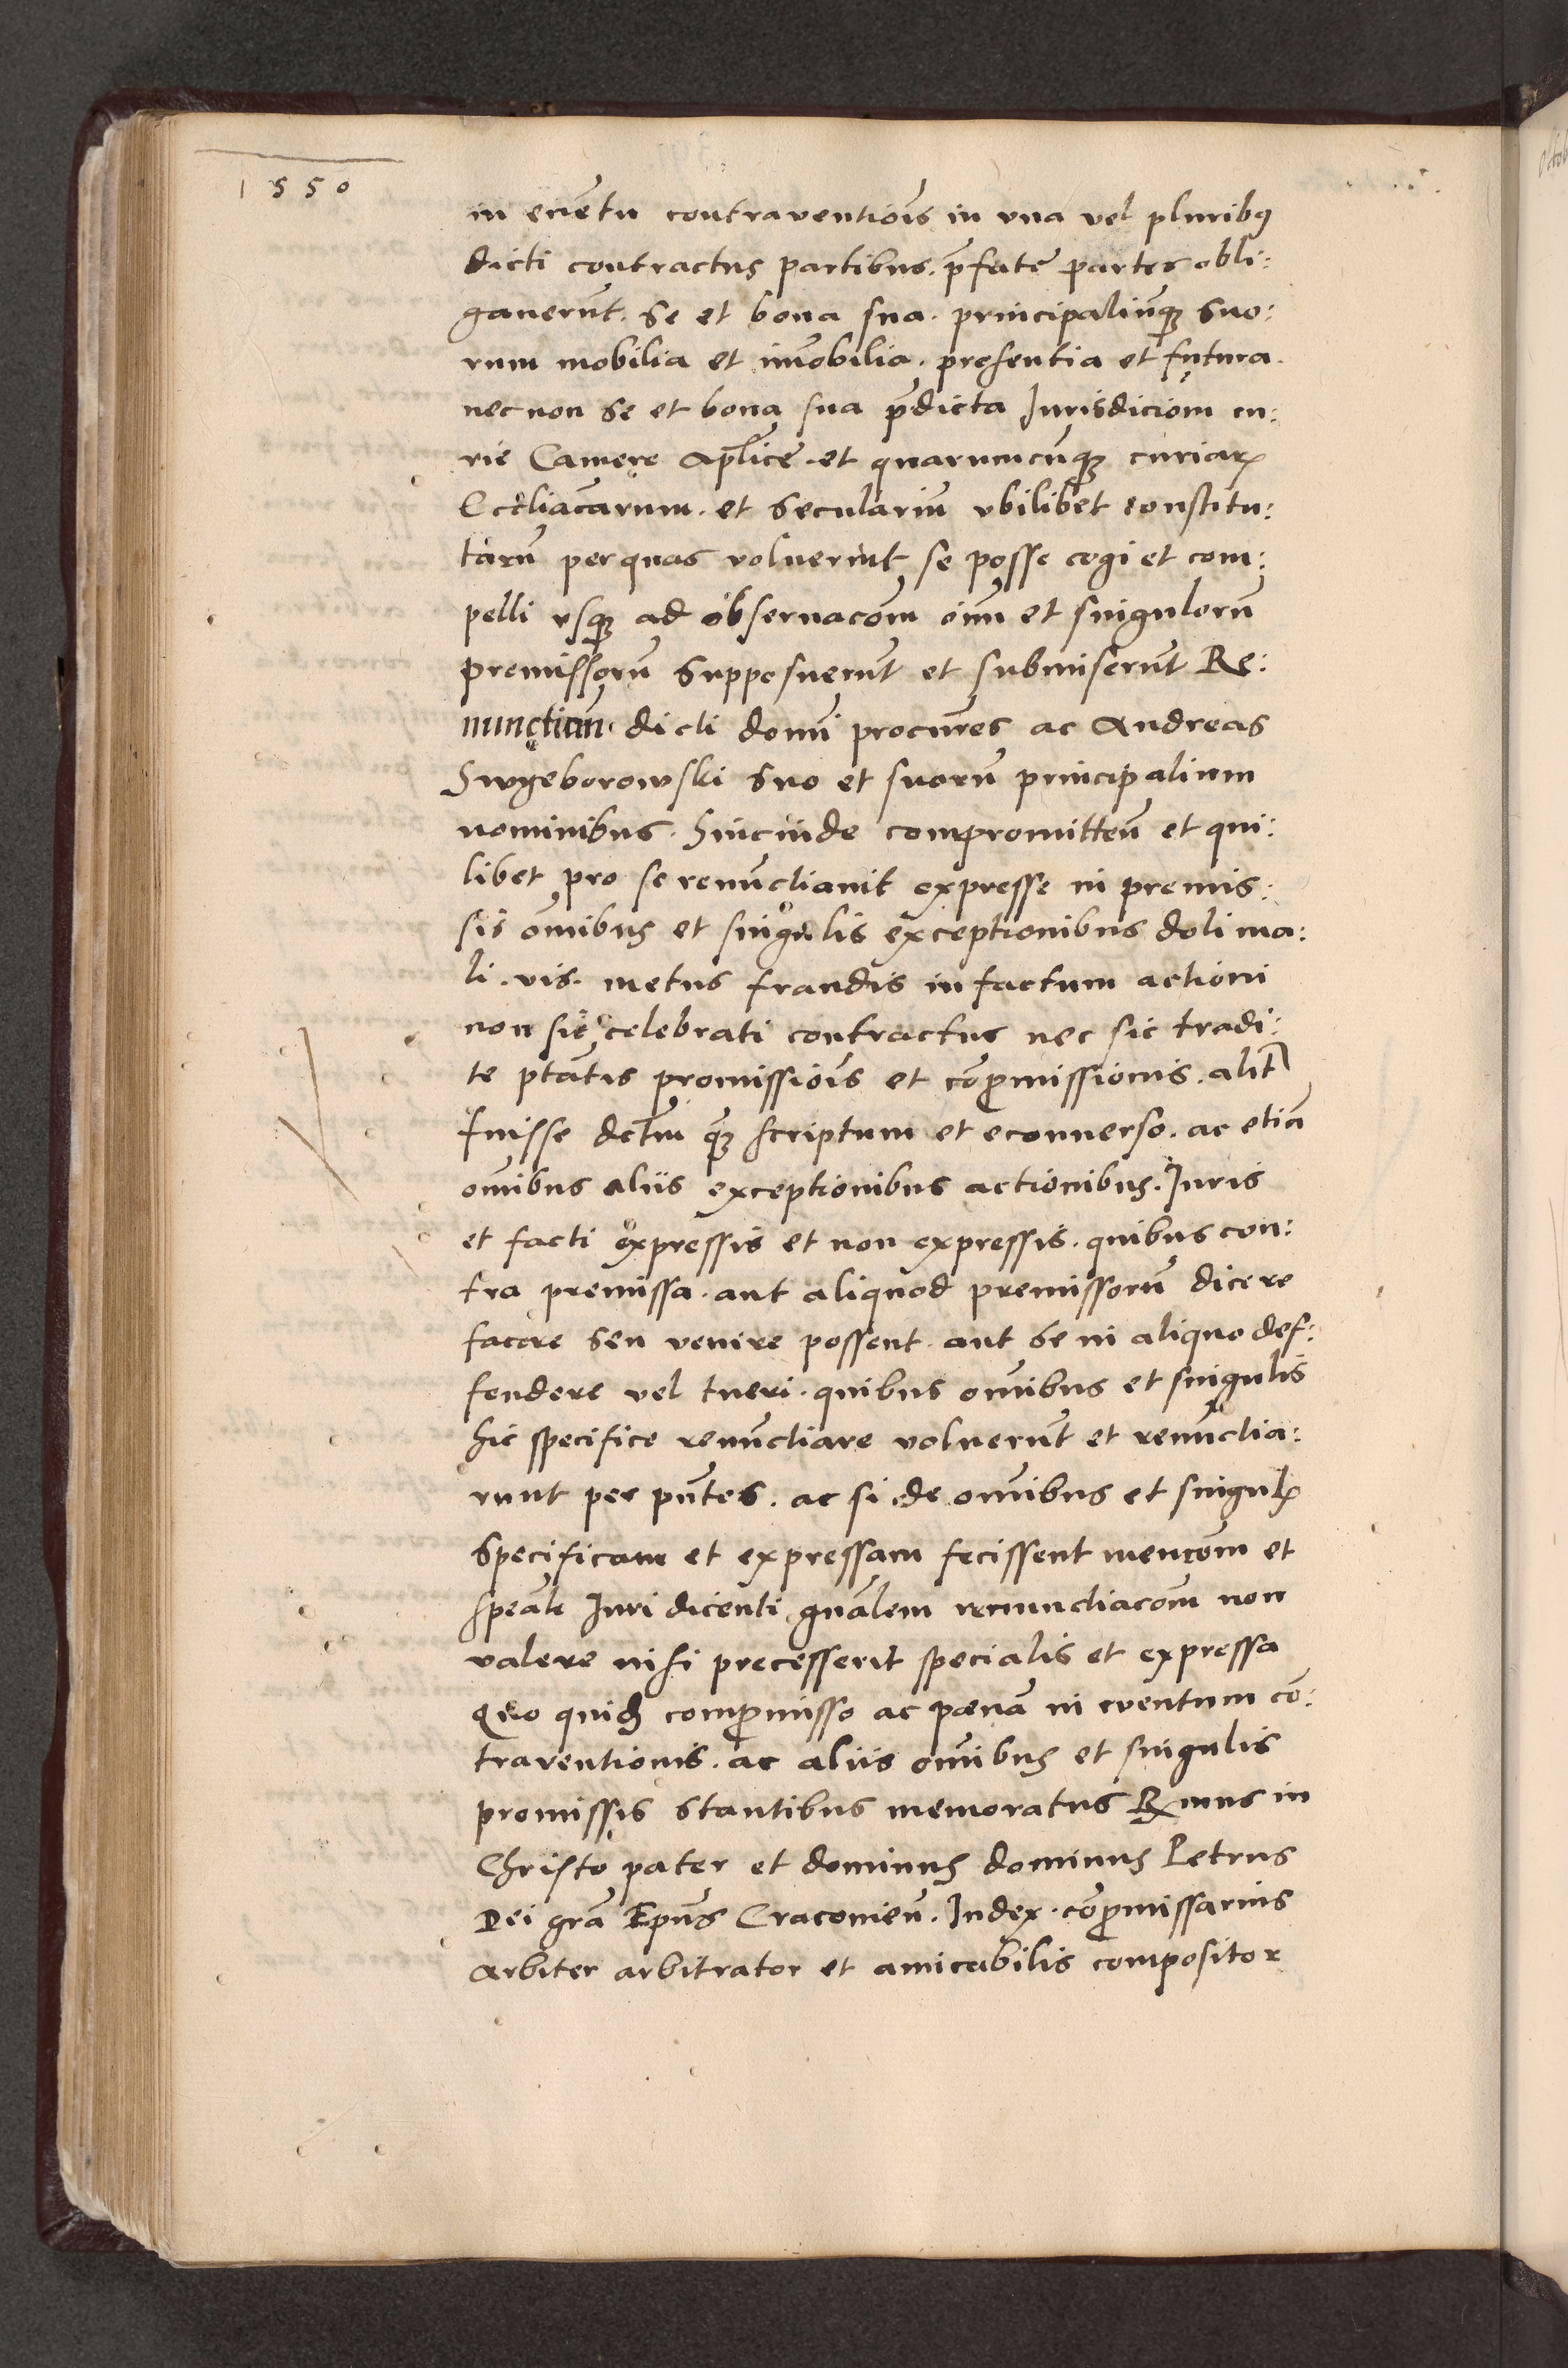 1550
in euētu contraventiōis in vna vel pluribꝰ
dicti contractus partibus. p̄fate partes obli:
gauerūt. se et bona sua. principaliūqꝫ suo:
rum mobilia et im̄obilia. presentia et futura.
nec non se et bona sua p̄dicta Jurisdiciōm cu:
rie Camere Ap̄lice. et quarumcūqꝫ curiarꝝ
Eccl̄iacarum. et seculariū vbilibet constitu:
tarū per quas voluerint se posse cogi et com:
pelli vsqꝫ ad obseruacōm oīm et singulorū
premissorū supposuerūt et submiserūt Re:
nunctiām. dicti domī procur̄es ac Andreas
Swyeborowski suo et suorū principalium
nominibus. Hincinde compromitteñ et qui:
libet pro se renūctiauit expresse in premis:
sis om̄ibus et singulis exceptionibus doli ma:
li. vis. metus fraudis in factum actioni
non sic celebrati contractus nec sic tradi:
te ptātis promissiōis et cōpromissionis. alit̄
fuisse dctm̄ qꝫ scriptum et econuerso. ac etiā
om̄ibus aliis exceptionibus actionibus. Juris
et facti expressis et non expressis. quibus con:
tra premissa. aut aliquod premissorū dicere
facere seu venire possent. aut se in aliquo def:
fendere vel tueri. quibus om̄ibus et singulis
hic specifice renūctiare voluerūt et renūctia:
runt per pn̄tes. ac si de om̄ibus et singulꝭ
specificam et expressam fecissent mencōm et
speāle Juri dicenti gnālem renunctiacōm non
valere nisi precesserit specialis et expressa
Quo quidē comp̄misso ac pænā in euentum cō:
traventionis. ac aliis om̄ibus et singulis
promissis stantibus memoratus Rꝫmus in
Christo pater et dominus dominus Petrus
Dei grā Ep̄us Cracouieñ. Judex. cōpromissarius
Arbiter arbitrator et amicabilis compositor